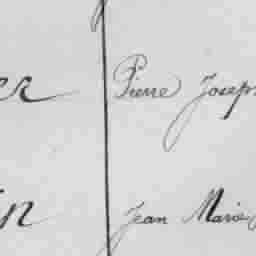 er Pierre Joseph
in Jean Marie